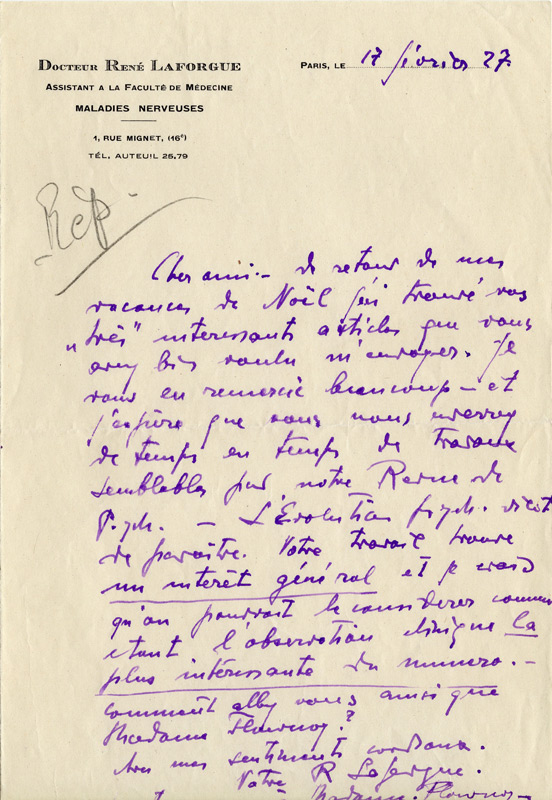 DOCTEUR RENÉ LAFORGUE
ASSISTANT A LA FACULTÉ DE MÉDECINE
MALADIES NERVEUSES
1, RUE MIGNET, (16e)
TÉL. AUTEUIL 25.79
PARIS, LE 17 février 27.
Rép
Cher ami :- de retour de mes
vacances de Noël j'ai trouvé vos
„très" intéressants articles que vous
avez bien voulu m'envoyer. Je
vous en remercie beaucoup - et
j'espère que vous nous
de temps en temps de travaux
semblables par notre Revue de
Psych. - L'Evolution psych. vient
de paraître. Votre travail trouve
un intérêt général et je crois
qu'on pourrait le considérer comme
étant l'observation clinique la
plus intéressante du numéro. -
comment allez vous ainsi que
Madame Flournoy?
Avec mes sentiments cordiaux.
Votre R Laforgue.
Madame Flournoy